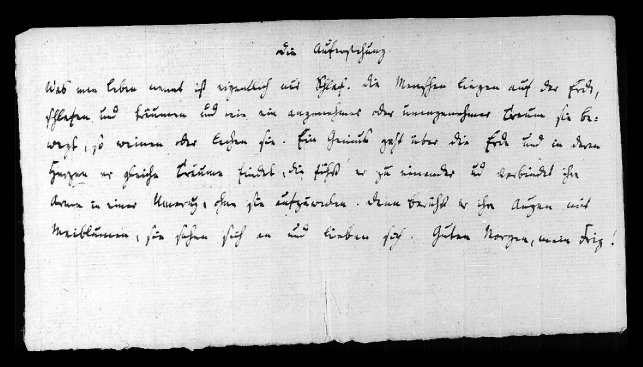 Die Auferstehung.
Was man Leben nennt ist eigentlich nur Schlaf. Die Menschen liegen auf der Erde,
schlafen und träumen und wie ein angenehmer oder unangenehmer Traum sie be=
wegt, so weinen oder lachen sie. Ein Genius geht über die Erde und in deren
Herzen er gleiche Träume findet, die führt er zu einander u verbindet ihre
Arme in einer Umarmg, ohne sie aufzuwecken. Dann berührt er ihre Augen mit
Maiblumen, sie sehen sich an und lieben sich. Guten Morgen, mein Friz!